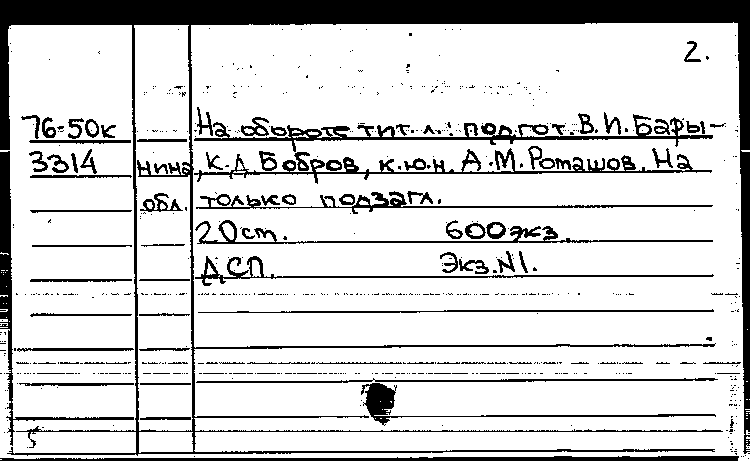 2.
76-50к На обороте тит. л.: подгот. В. И. Бары-
3314 нина, К. Д. Бобров, к.ю.н. А. М. Ромашов. На
обл. только подзагл.
20 см. 600 экз.
ДСП. Экз. N1.
5